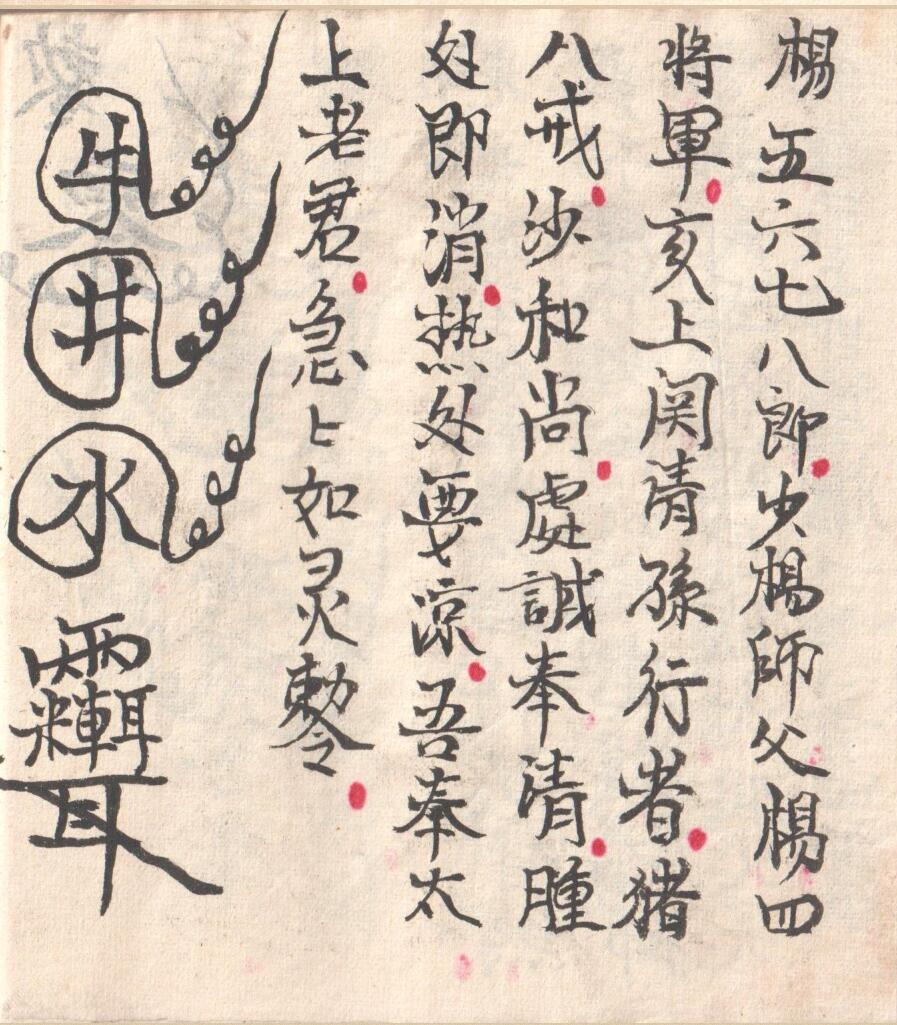 楊五六七八郎少楊師父楊四
將軍亥上関清孫行者猪
八戒沙和尚處誠奉清腫
处即消热处要凉吾奉太
上老君急〻如灵勅令
牛井水